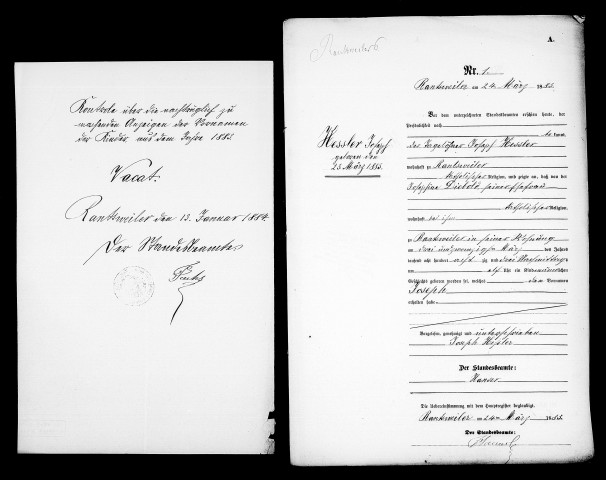 Kontrole über die nachträglich zu
machenden Anzeigen der Vornamen
der Kinder aus dem Jahre 1883
Vacat.
Rantzweiler den 13. Januar 1884
Der Standesbeamte
Fuchs
Rantzweiler
A.
Nr. 1
Rantzweiler am 24 März 1883.
Vor dem unterzeichneten Standesbeamten erschien heute, der
Persönlichkeit nach
kannt,
der Tagelöhner Joseph Hessler
wohnhaft zu Rantzweiler
katholischer Religion, und zeigte an, daß von der
Josephine Diebold seiner Ehefrau
katholischer Religion,
wohnhaft bei ihm
zu Rantzweiler in seiner Wohnung
am drei und zwanzigsten März des Jahres
tausend acht hundert achtzig und drei Vormittags
um elf Uhr ein Kind männlichen
Geschlechts geboren worden sei, welches den Vornamen
Joseph
erhalten habe
Hessler Joseph
geboren den
23 März 1883.
Vorgelesen, genehmigt und unterschrieben
Joseph Hessler
Der Standesbeamte:
Die Uebereinstimmung mit dem Hauptregister beglaubigt.
Rantzweiler am 24ten März 1883.
Der Standesbeamte: